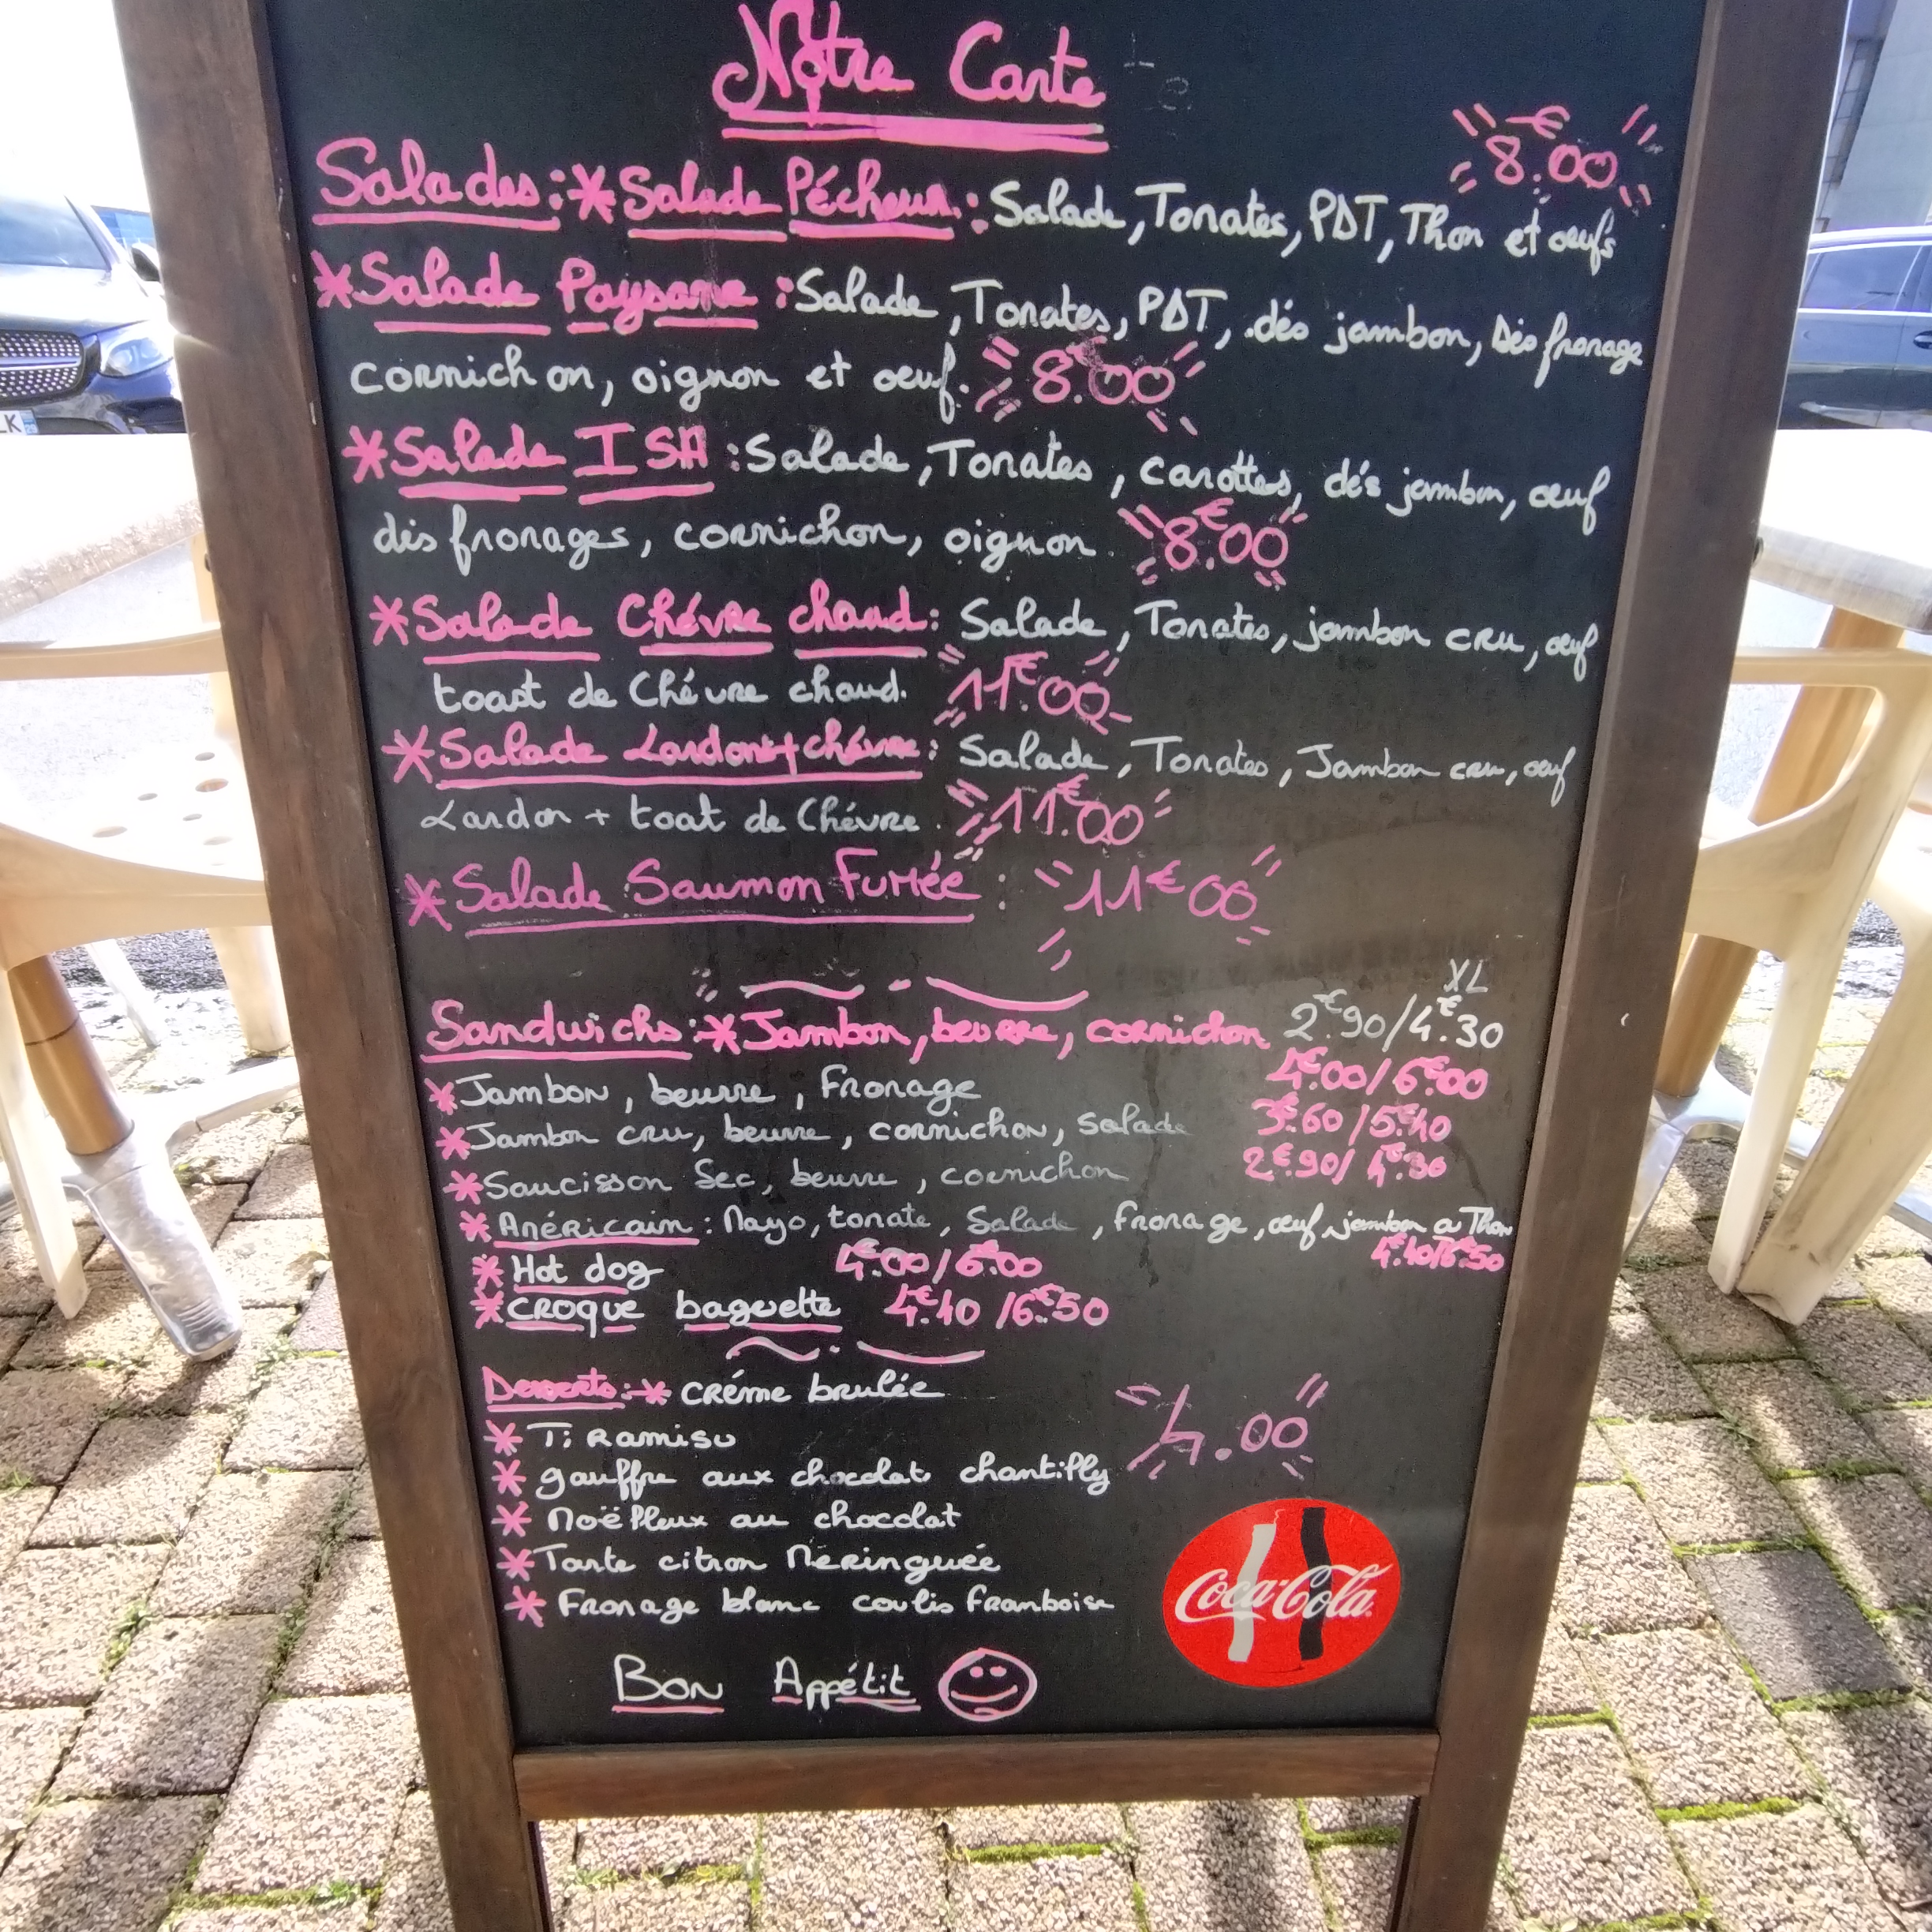 Nôtre Carte
8€.00
Salades: * Salade Pécheur.: Salade, Tomates, PDT, Thon et œufs
* Salade Paysane: Salade, Tomates, PDT, dés jambon, Dés fromage
cornichon, oignon et œuf. 8€.00
* Salade ISA: Salade, Tomates, carottes, dés jambon, œuf
dés fromages, cornichon, oignon. 8€.00
* Salade Chévre chaud: Salade, Tomates, jambon cru, œuf
toast de Chévre chaud. 11€.00
* Salade Lardons+chévre: Salade, Tomates, Jambon cru, œuf
Lardon + toat de Chévre. 11€.00
* Salade Saumon Fumée: 11€00
XL
Sandwichs: * Jambon, beurre, cornichon 2€.90/4€.30
* Jambon, beurre, Fromage 4€.00/6€.00
* Jambon cru, beurre, cornichon, salade 3€.60/5€.40
* Saucisson Sec, beurre, cornichon 2€.90/4€.30
* Américain: Mayo, tomate, Salade, fromage, œuf, jambon a Thon
4€.40/6€.50
* Hot dog 4€.00/6€.00
* CROQUE baguette 4€.40/6€.50
Desserts: * créme brulée
4.00
* Tiramisu
* gauffre aux chocolat chantilly
* Moëlleux au chocolat
* Tarte citron Méringuée
* Fromage blanc coulis framboise
Coca-Cola
Bon Appétit